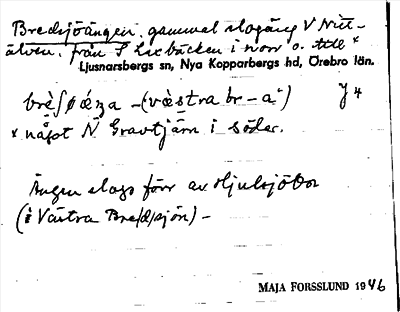 Bredsjöängen, gammal slogäng V Nitt-
älven, från S Lixbäcken i norr o. till x
Ljusnarsbergs sn, Nya Kopparbergs hd, Örebro län.
brèʃøǽŋa – (væ̀stra br – a") J4
x något N Gravtjärn i söder.
Ängen slogs förr av Hjulsjöbor
(i Västra Bre/d/sjön) –
MAJA FORSSLUND 1946